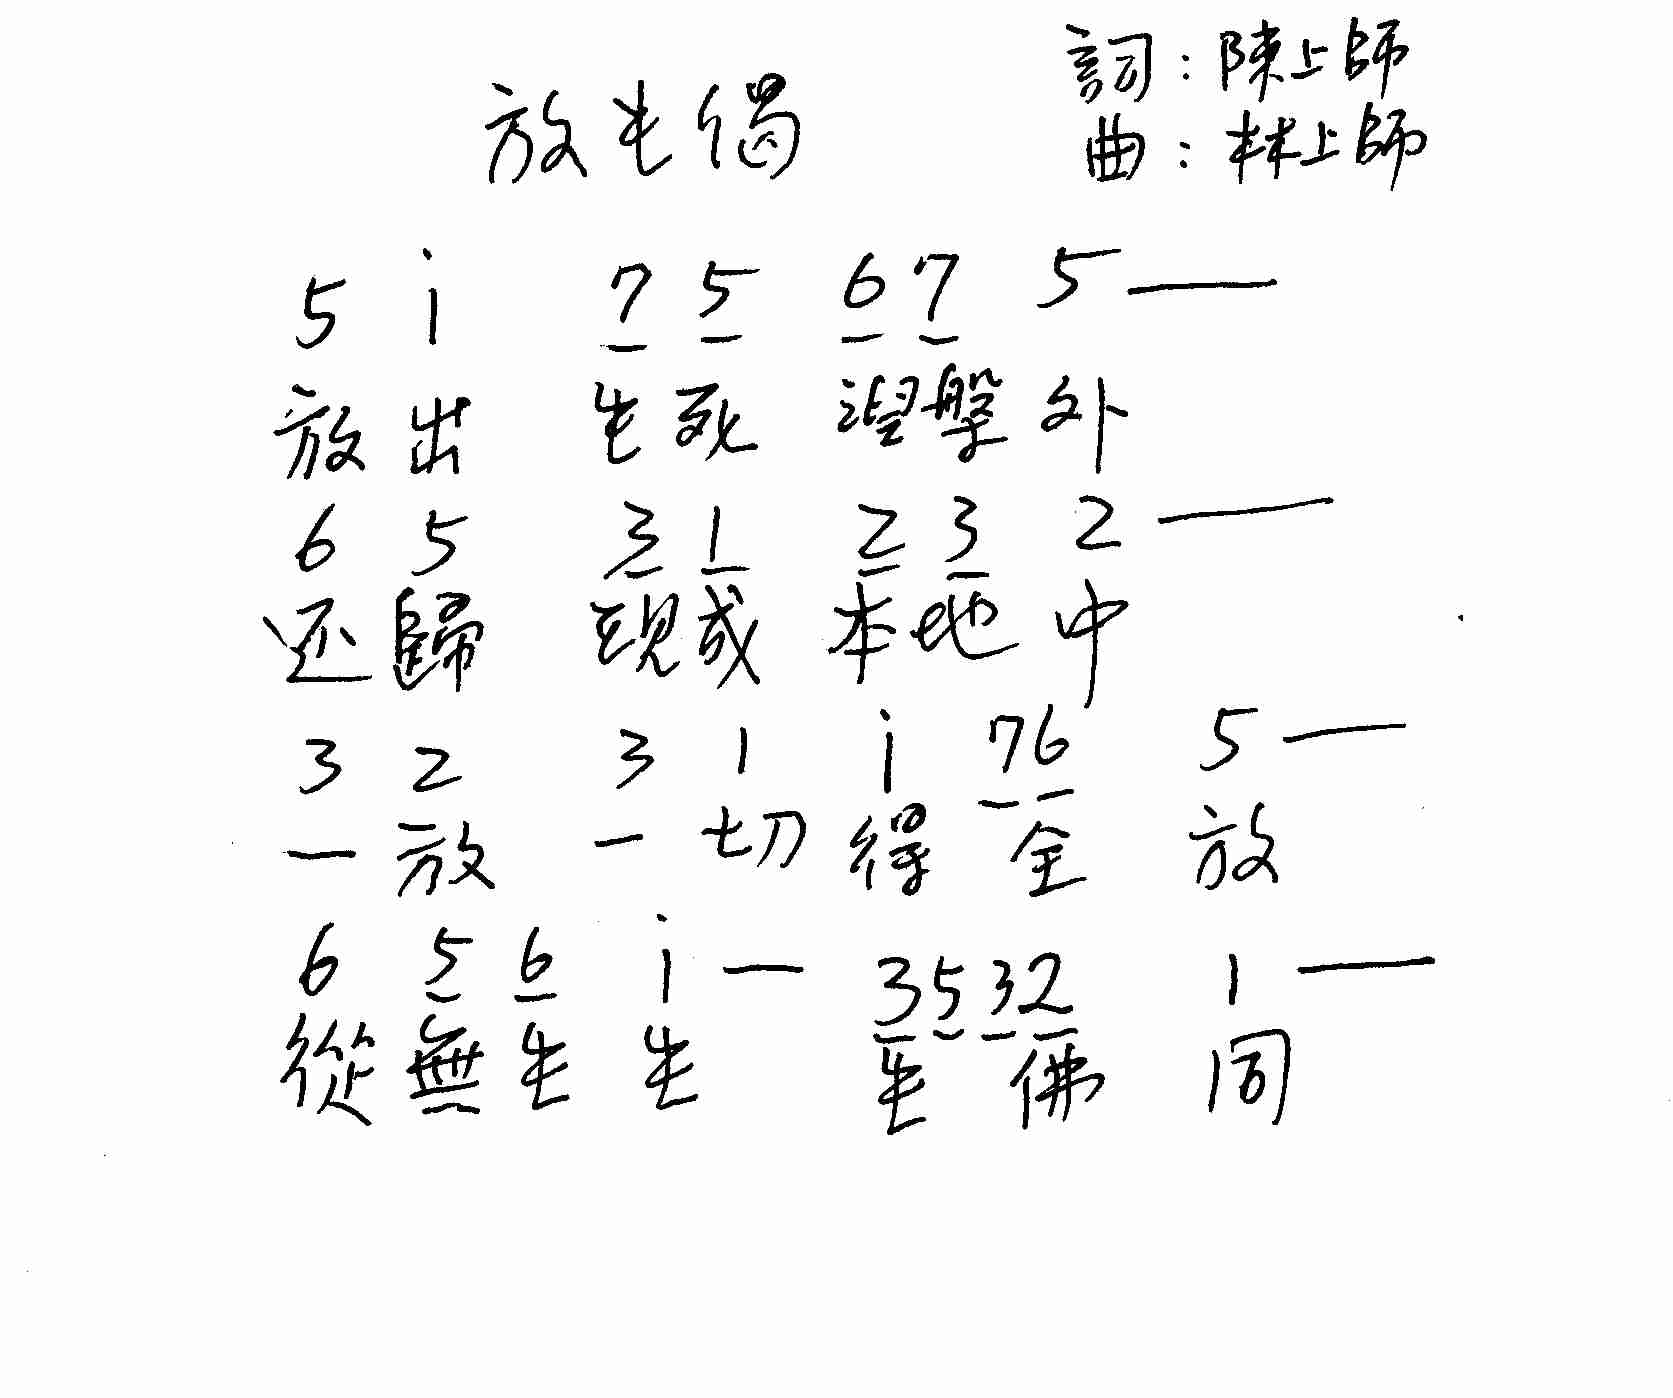 詞：陳上師
放生偈
曲：林上師
5 i 7 5 6 7 5 —
放出 生死 涅槃 外
6 5 3 1 2 3 2 —
还歸 現成 本地 中
3 2 3 1 i 76 5 —
一放 一切 得 全 放
6 5 6 i — 3532 1 —
從無生 生 生 佛 同